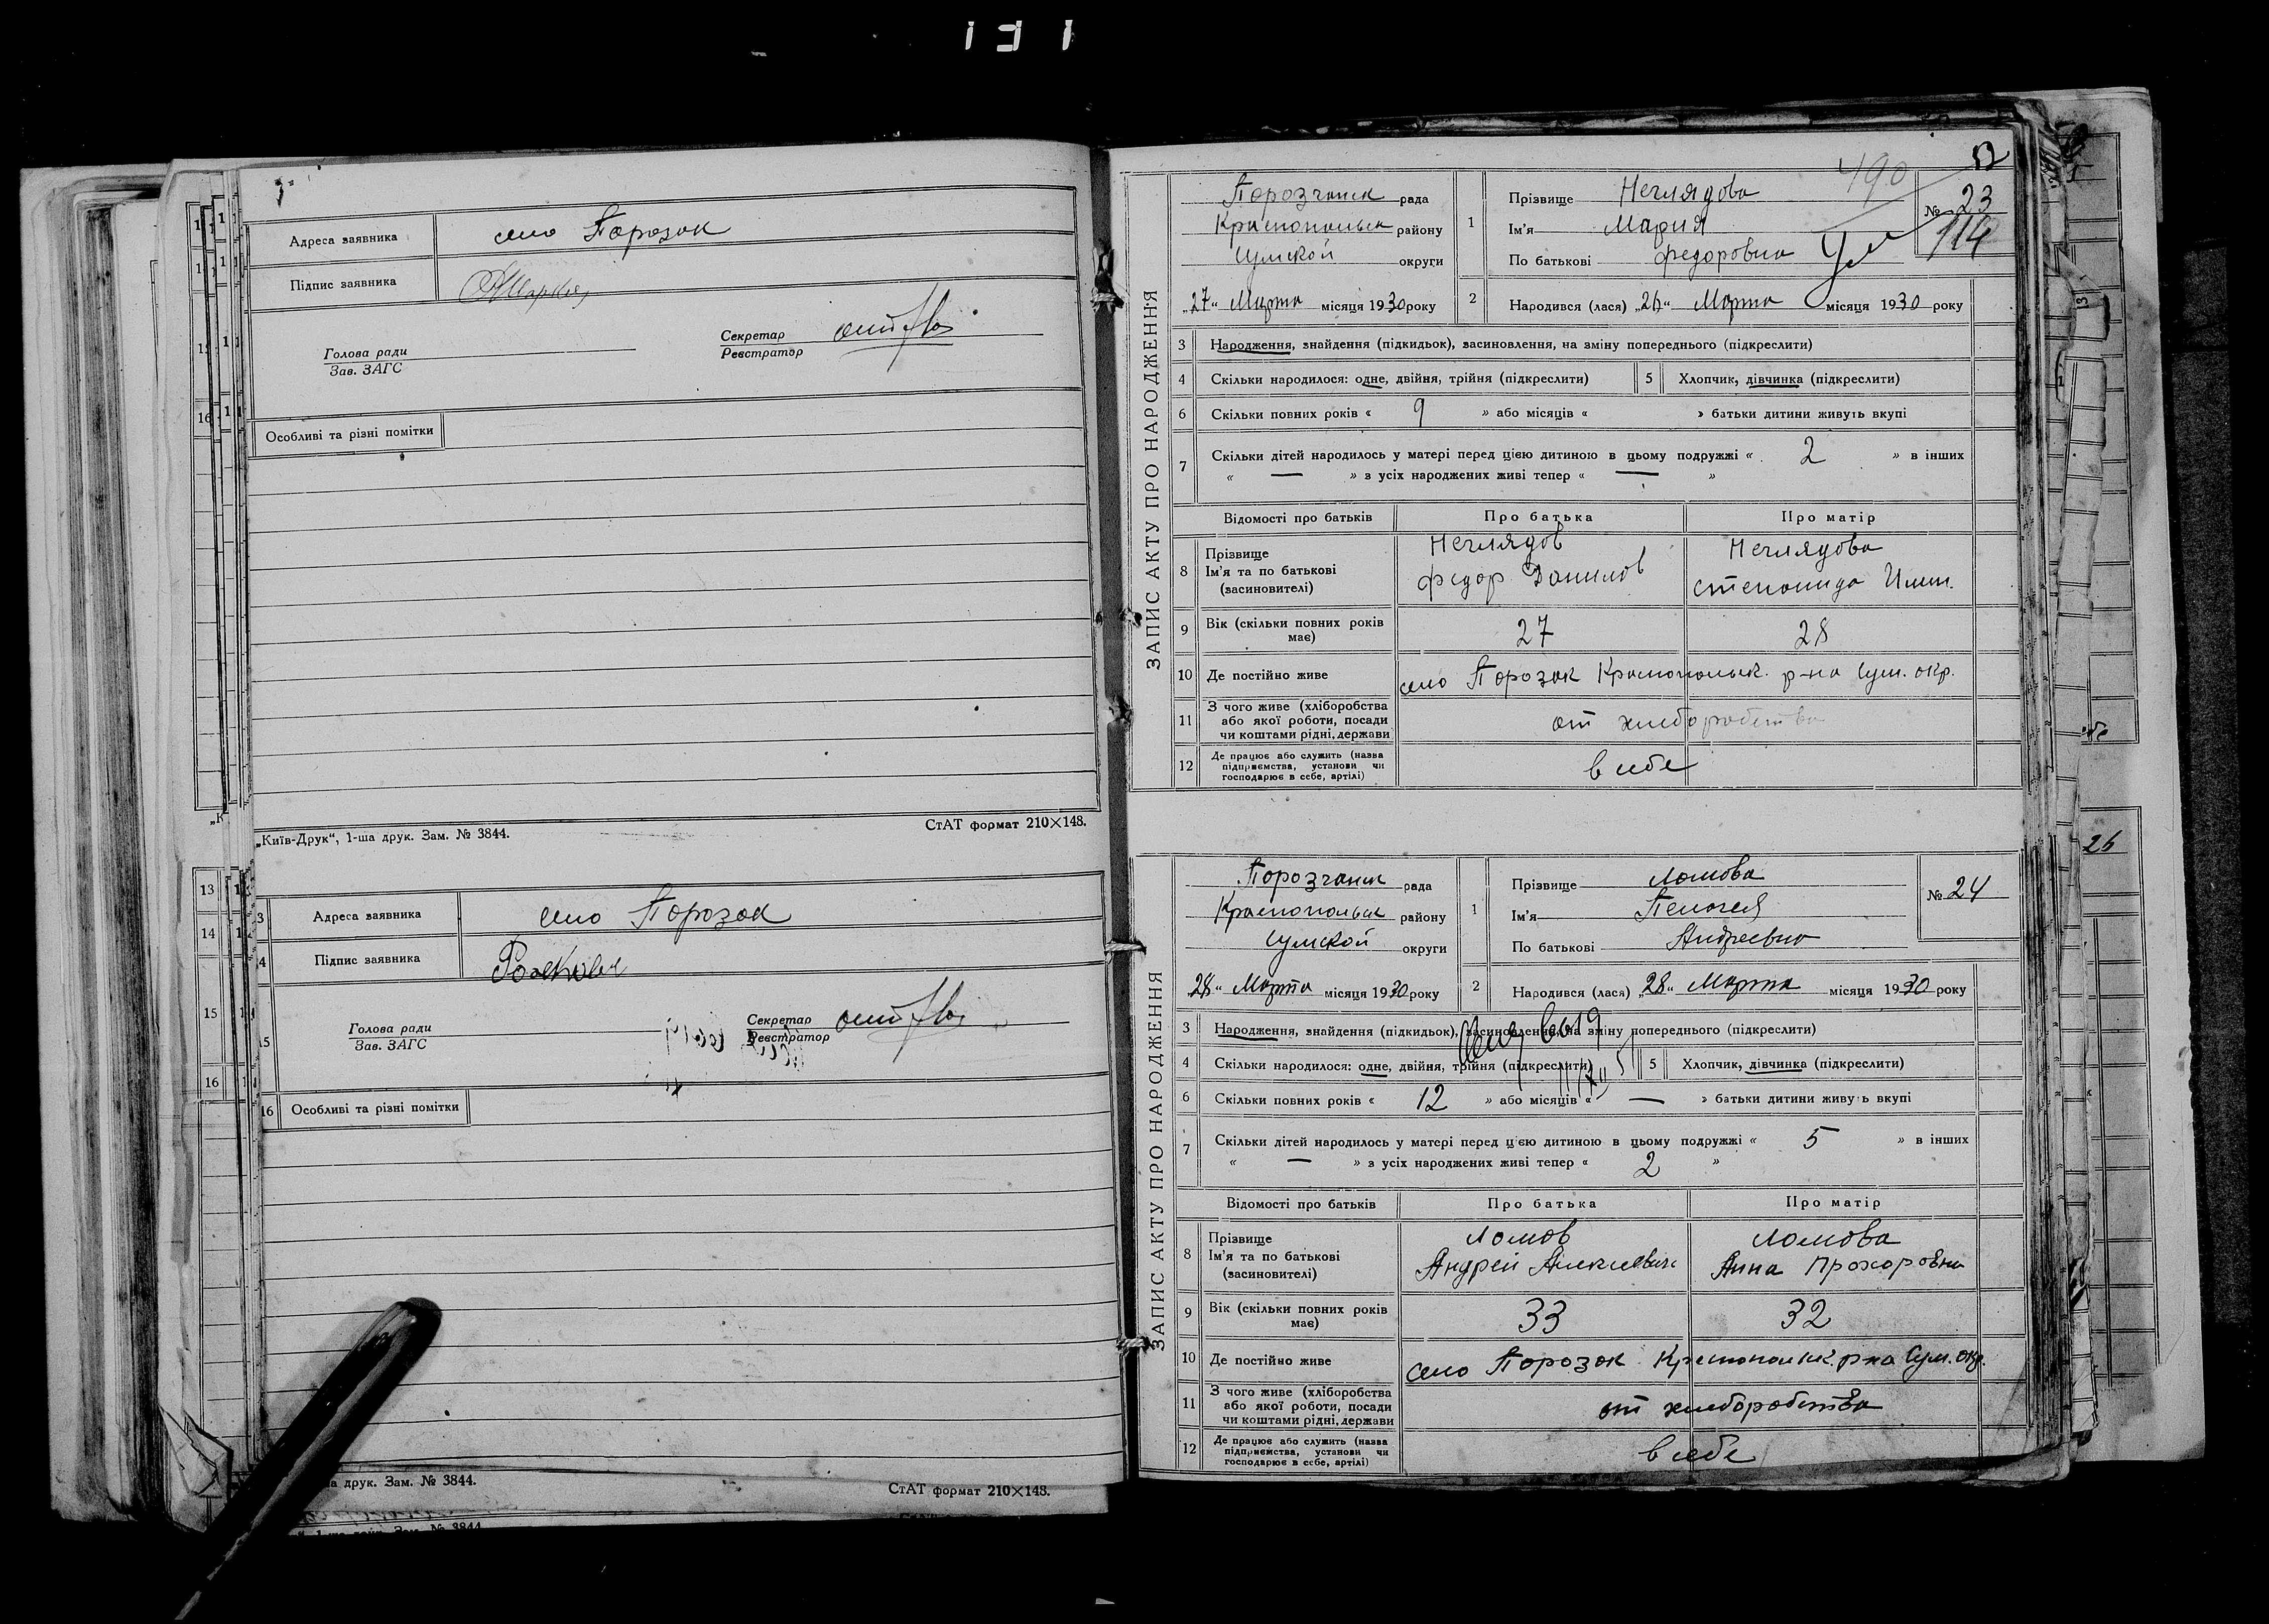 Адреса заявника село Порозок
Підпис заявника
Голова ради
Зав. ЗАГС
Секретар
Реєстратор
Особливі та різні помітки
„Київ-Друк“, 1-ша друк. Зам. № 3844.
СтАТ формат 210×148.
13
14
15
16
Адреса заявника село Порозок
Підпис заявника
Голова ради
Зав. ЗАГС
Секретар
Реєстратор
16 Особливі та різні помітки
друк. Зам. № 3844.
СтАТ формат 210×148.
490
ЗАПИС АКТУ ПРО НАРОДЖЕННЯ
Порозчанск рада
Краснопольск району
Сумской округи
„27“ Марта місяця 1930 року
1 Прізвище Неглядова
Ім'я Мария
По батькові Федоровна
№ 23
114
2 Народився (лася) „26“ Марта місяця 1930 року
3 Народження, знайдення (підкидьок), засиновлення, на зміну попереднього (підкреслити)
4 Скільки народилося: одне, двійня, трійня (підкреслити) 5 Хлопчик, дівчинка (підкреслити)
6 Скільки повних років « 9 » або місяців « » батьки дитини живуть вкупі
7 Скільки дітей народилось у матері перед цією дитиною в цьому подружжі « 2 » в інших
« — » з усіх народжених живі тепер « — »
Відомості про батьків Про батька Про матір
8 Прізвище
Ім'я та по батькові
(засиновителі)
Неглядов
Федор Данилов
Неглядова
Степонида Илли.
9 Вік (скільки повних років має) 27 28
10 Де постійно живе село Порозок Краснопольск. р-на Сум. окр.
11 З чого живе (хліборобства
або якої роботи, посади
чи коштами рідні, держави
от хлеборобства
12 Де працює або служить (назва
підприємства, установи чи
господарює в себе, артілі)
в себе
ЗАПИС АКТУ ПРО НАРОДЖЕННЯ
Порозчанск рада
Краснопольск району
Сумской округи
„28“ Марта місяця 1930 року
1 Прізвище Ломова
Ім'я Пелагея
По батькові Андреевна
№ 24
2 Народився (лася) „28“ Марта місяця 1930 року
3 Народження, знайдення (підкидьок), засиновлення, на зміну попереднього (підкреслити)
4 Скільки народилося: одне, двійня, трійня (підкреслити) 5 Хлопчик, дівчинка (підкреслити)
6 Скільки повних років « 12 » або місяців « — » батьки дитини живуть вкупі
7 Скільки дітей народилось у матері перед цією дитиною в цьому подружжі « 5 » в інших
« — » з усіх народжених живі тепер « 2 »
Відомості про батьків Про батька Про матір
8 Прізвище
Ім'я та по батькові
(засиновителі)
Ломов
Андрей Алексеевич
Ломова
Анна Прохоровна
9 Вік (скільки повних років має) 33 32
10 Де постійно живе село Порозок Краснопольск. р-на Сум. окр.
11 З чого живе (хліборобства
або якої роботи, посади
чи коштами рідні, держави
от хлеборобства
12 Де працює або служить (назва
підприємства, установи чи
господарює в себе, артілі)
в себе
26